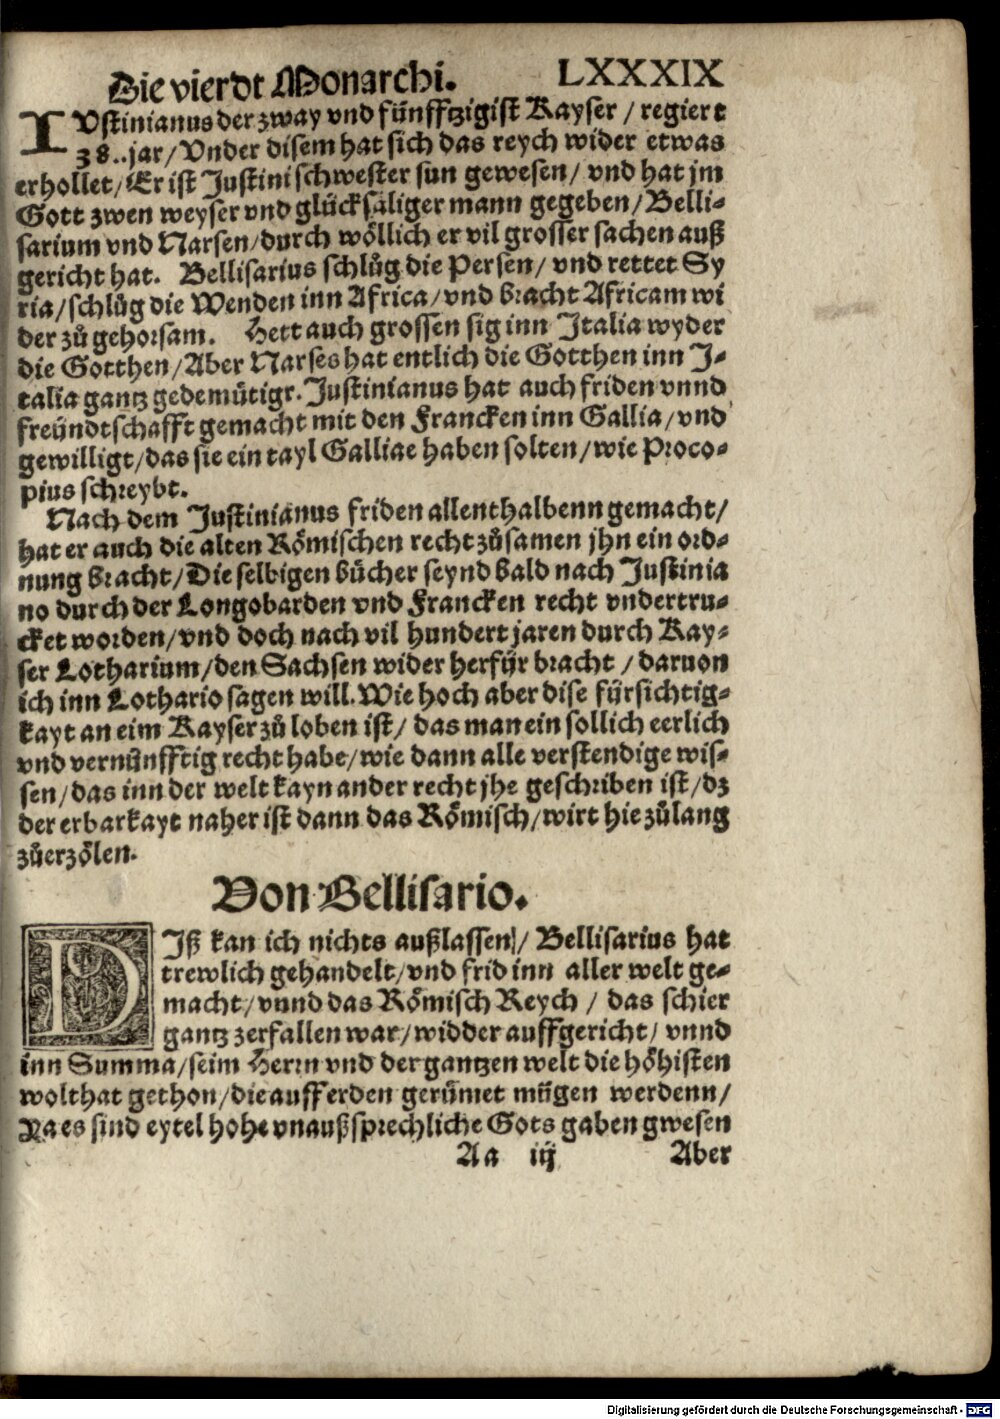 Die vierdt Monarchi. LXXXIX
IVstinianus der zway vnd fünfftzigist Kayser / regiert
38..jar / Vnder disem hat sich das reych wider etwas
erhollet / Er ist Justini schwester sun gewesen / vnd hat jm
Gott zwen weyser vnd glücksäliger mann gegeben / Belli-
sarium vnd Narsen / durch wöllich er vil grosser sachen auß
gericht hat. Bellisarius schlůg die Persen / vnd rettet Sy
ria / schlůg die Wenden inn Africa / vnd bracht Africam wi
der zů gehorsam. Hett auch grossen sig inn Italia wyder
die Gotthen / Aber Narses hat entlich die Gotthen inn J-
talia gantz gedemütigr. Justinianus hat auch friden vnnd
freündtschafft gemacht mit den Francken inn Gallia / vnd
gewilligt / das sie ein tayl Galliae haben solten / wie Proco-
pius schreybt.
Nach dem Justinianus friden allenthalbenn gemacht /
hat er auch die alten Römischen recht zůsamen jhn ein ord-
nung bracht / Die selbigen bücher seynd bald nach Justinia
no durch der Longobarden vnd Francken recht vndertru-
cket worden / vnd doch nach vil hundert jaren durch Kay-
ser Lotharium / den Sachsen wider herfür bracht / daruon
ich inn Lothario sagen will. Wie hoch aber dise fürsichtig-
kayt an eim Kayser zů loben ist / das man ein sollich eerlich
vnd vernünfftig recht habe / wie dann alle verstendige wis-
sen / das inn der welt kayn ander recht jhe geschriben ist / dz
der erbarkayt naher ist dann das Römisch / wirt hie zůlang
zůerzölen.
Von Bellisario.
DIß kan ich nichts außlassen / Bellisarius hat
trewlich gehandelt / vnd frid inn aller welt ge-
macht / vnnd das Römisch Reych / das schier
gantz zerfallen war / widder auffgericht / vnnd
inn Summa / seim Herrn vnd der gantzen welt die höhisten
wolthat gethon / die auff erden gerümet mügen werdenn /
Ra es sind eytel hohe vnaußsprechliche Gots gaben gwesen
Aa iij Aber
Digitalisierung gefördert durch die Deutsche Forschungsgemeinschaft - DFG